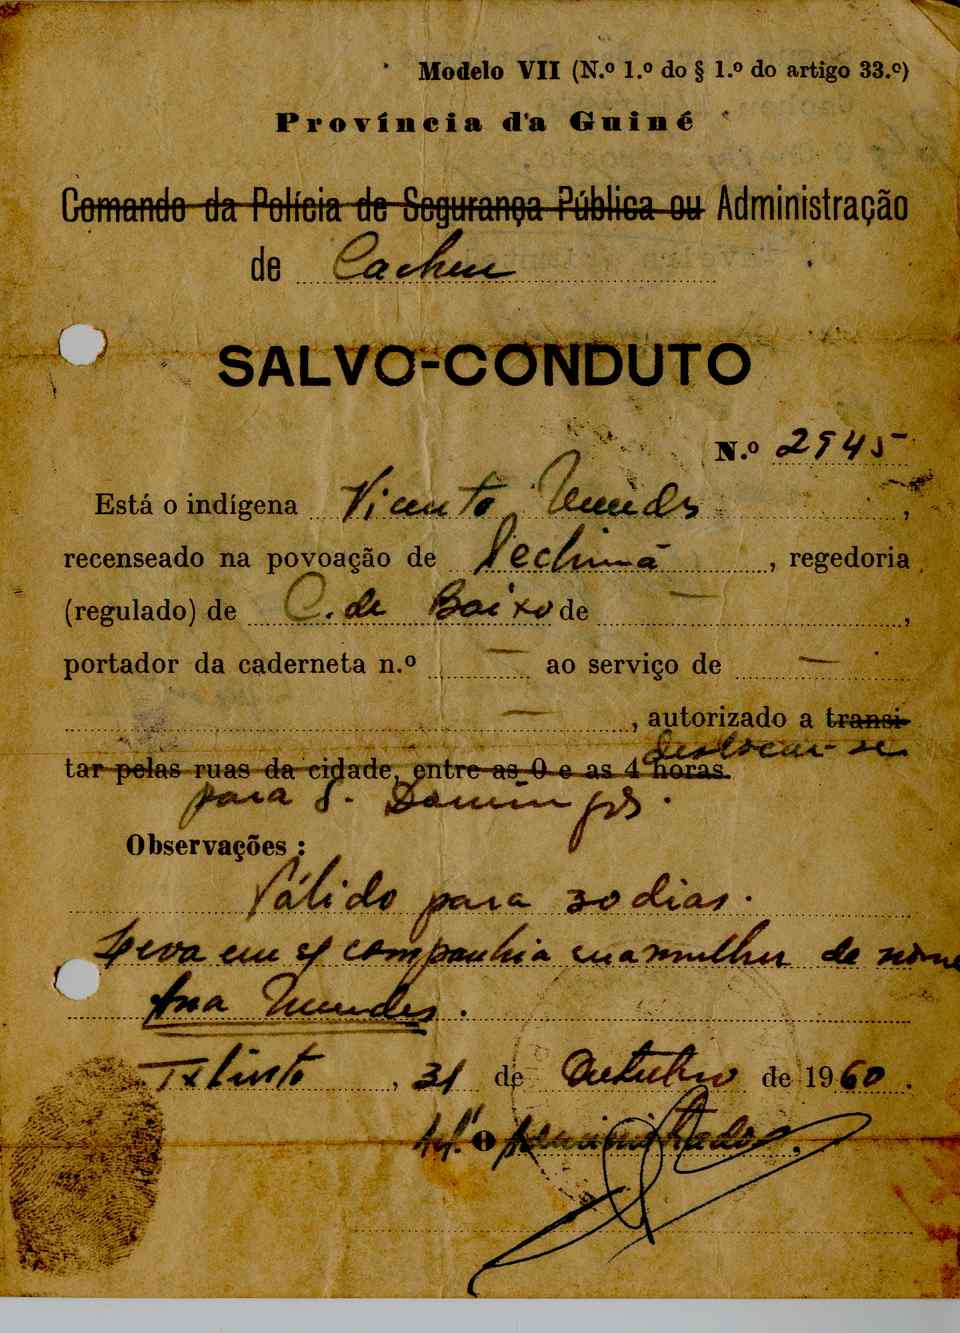 Modelo VII (N.º 1.º do § 1.º do artigo 33.º)
Província da Guiné
Comando da Polícia de Segurança Pública ou Administração
de Cacheu
SALVO-CONDUTO
N.º 2945
Está o indígena Vicente Mendes,
recenseado na povoação de Pechimã, regedoria
(regulado) de C. de Baixo de —,
portador da caderneta n.º — ao serviço de —
—, autorizado a transi-
deslocar-se
tar pelas ruas da cidade, entre as 0 e as 4 horas.
para S. Domingos.
Observações:
Válido para 30 dias.
Leva em s/ companhia sua mulher de nome
Ana Mendes.
31 de Outubro de 1960.
O Administrador,